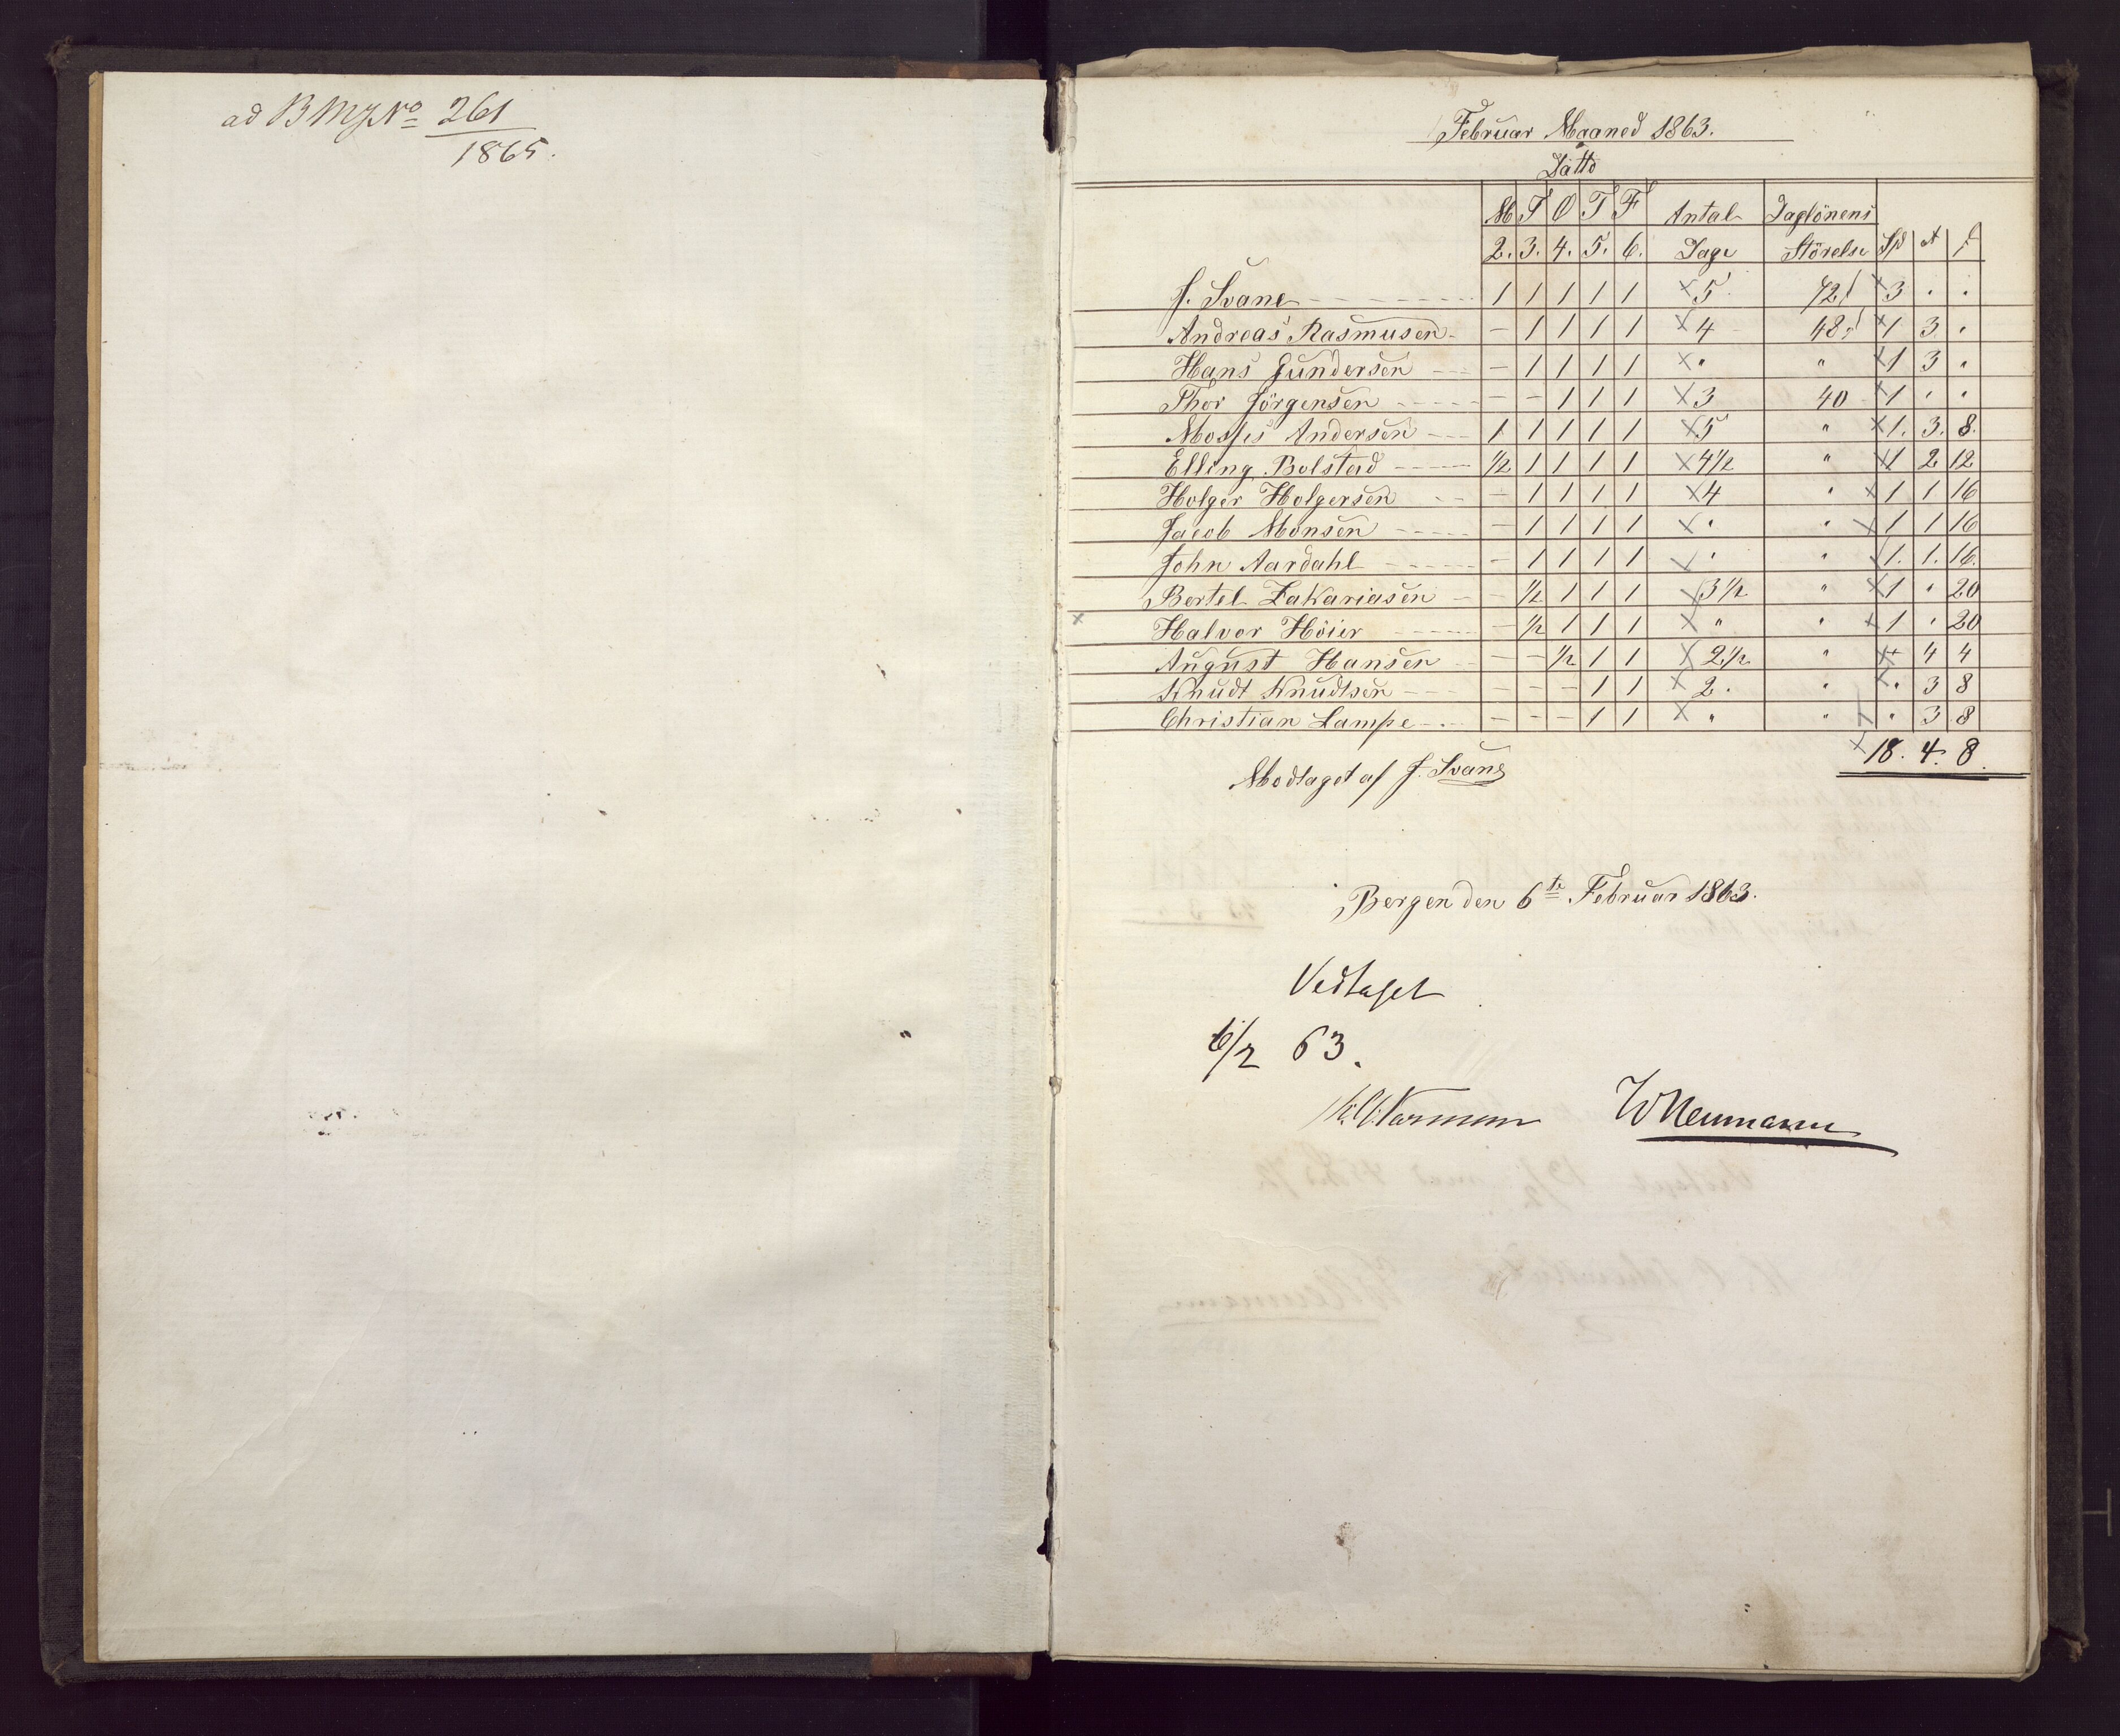 ad B Mg No 261
1865.
Februar Maaned 1863.
Datto
M T O T F Antal Daglönens
2. 3. 4. 5. 6. Dage Störelse Spd
J. Svane 1 1 1 1 1 × 5 72 × 3 . .
Andreas Rasmusen - 1 1 1 1 × 4 48 × 1 3 .
Hans Gundersen - 1 1 1 1 × " " × 1 3 "
Thor Jörgensen - - 1 1 1 × 3 40 × 1 . .
Mosses Andersen 1 1 1 1 1 × 5 " × 1. 3. 8.
Elling Bolstad 1/2 1 1 1 1 × 4 1/2 " × 1 2 12
Holger Holgersen - 1 1 1 1 × 4 " × 1 1 16
Jacob Monsen - 1 1 1 1 × " " × 1 1 16
John Aardahl - 1 1 1 1 × " " × 1. 1. 16.
Bertel Zakariasen - 1/2 1 1 1 × 3 1/2 " × 1 " 20
× Halvor Höier - 1/2 1 1 1 × " " × 1 . 20
August Hansen - - 1/2 1 1 × 2 1/2 " × 4 4
Knudt Knudtsen - - - 1 1 × 2. " × " 3 8
Christian Lampe - - - 1 1 × " " × " 3 8
× 18. 4. 8.
Modtaget af J. Svane
Bergen den 6te Februar 1863.
Vedtaget
6/2 63.
WNeumann